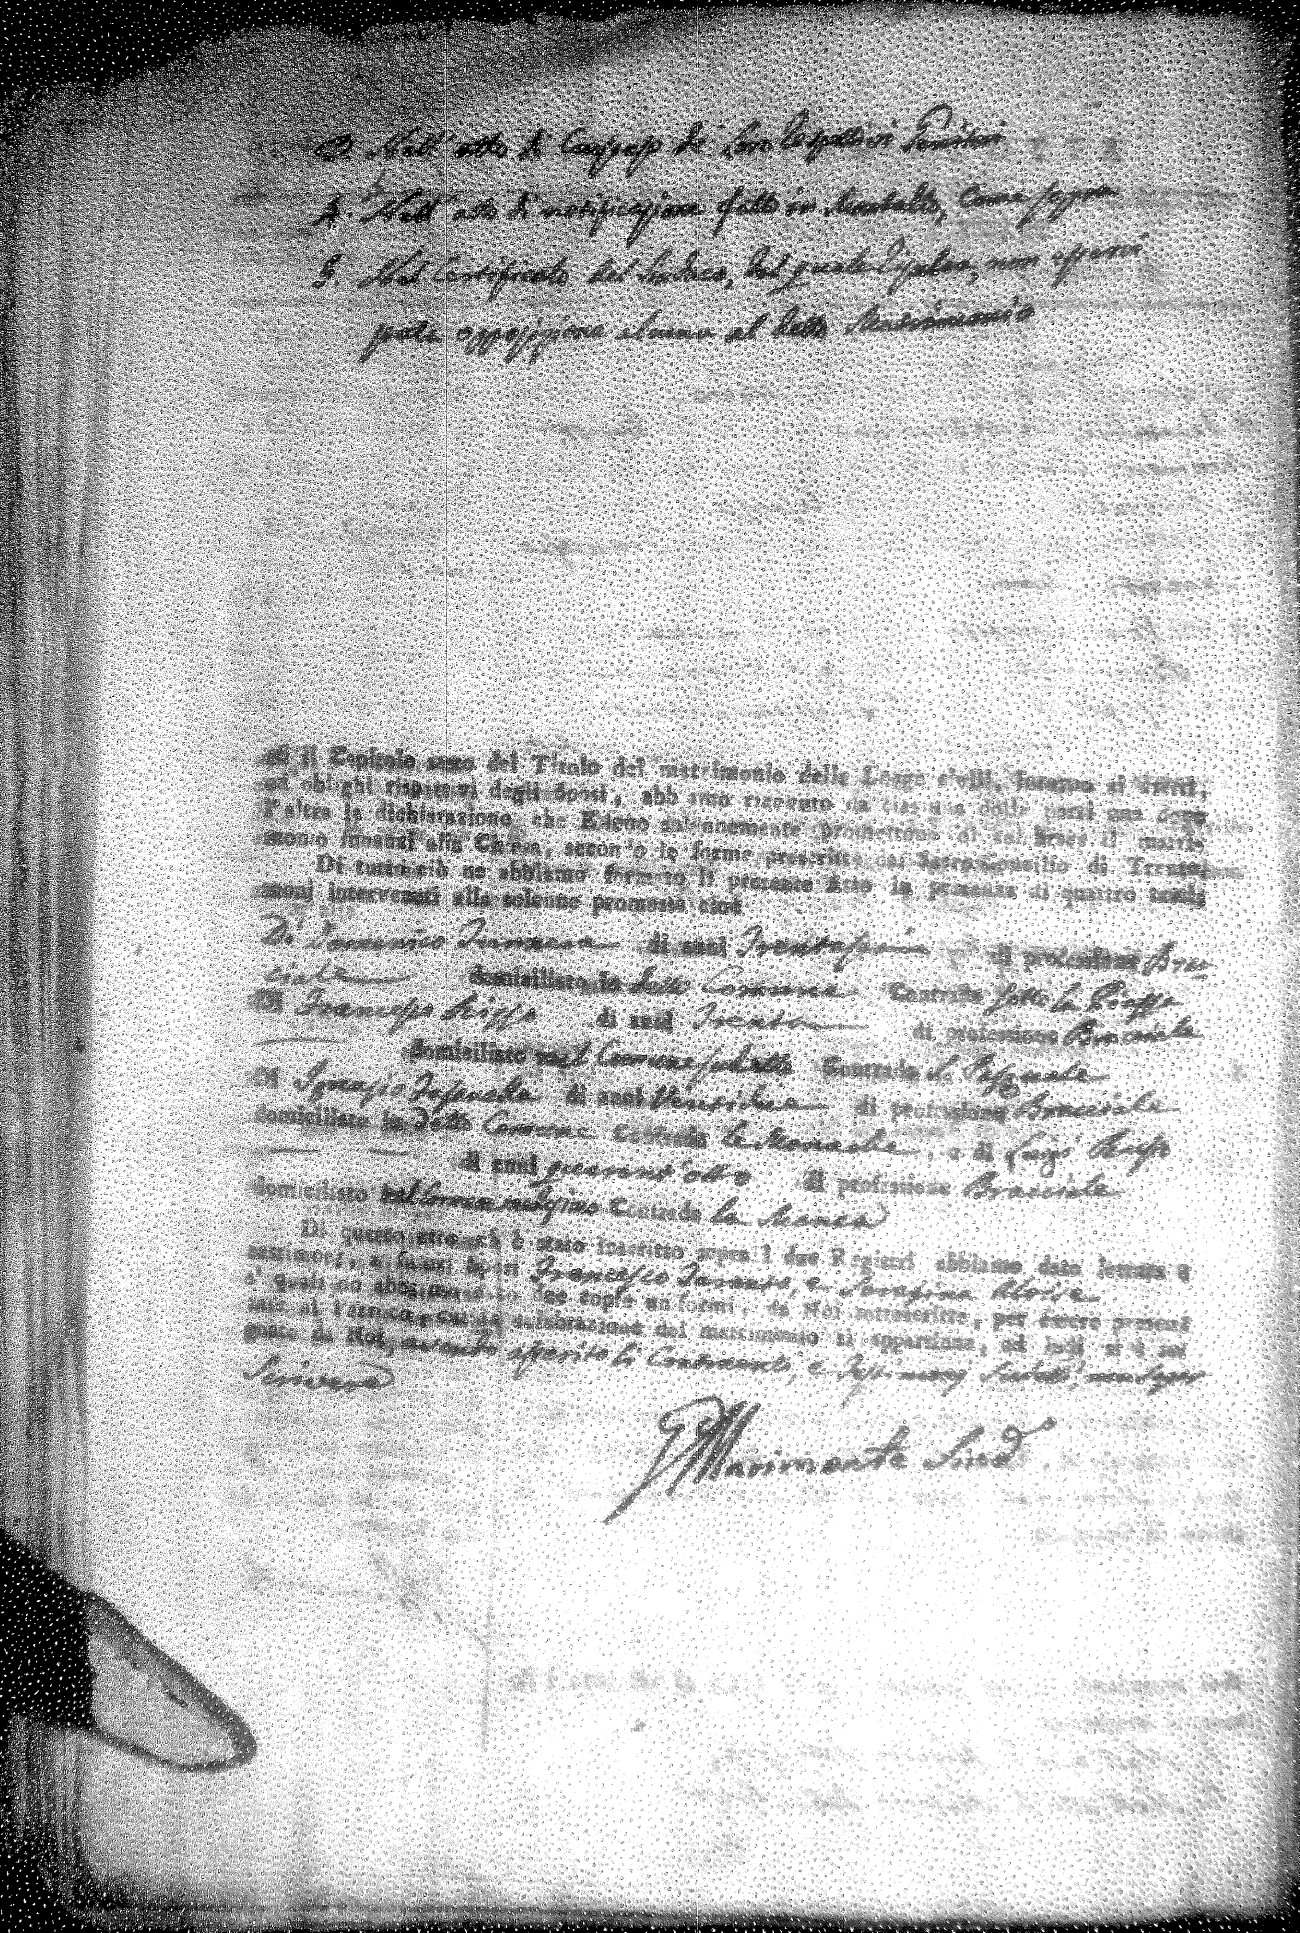 3. Nell'atto di Consenso de' loro rispettivi Genitori
4. Nell'atto di notificazione fatto in Montalto, come sopra
5. Nel Certificato del Sindaco, dal quale, non esservi
opposizione alcuna al detto Matrimonio
il Capitolo sesto del Titolo del matrimonio delle Legge civili, intorno ai diritti,
ed obblighi rispettivi degli Sposi, abbiamo ricevuto da ciascuna delle parti una dopo
l'altra la dichiarazione, che Elleno solennemente promettono di celebrare il matri-
monio innanzi alla Chiesa, secondo le forme prescritte dal Sacro Concilio di Trento
Di tutto ciò ne abbiamo formato il presente Atto in presenza di quattro testi-
monj intervenuti alla solenne promessa cioè
Di Domenico di anni Trentasei di professione Brac-
ciale domiciliato in detto Comune Contrada sotto la Piazza
Di Francesco Rizzo di anni Trenta di professione Bracciale
domiciliato nel Comune suddetto Contrada S. Pasquale
Di Ignazio di anni Ventidue di professione Bracciale
domiciliato in detto Comune Contrada le Monache, e di Luigi
di anni quarant'otto di professione Bracciale
domiciliato nel Comune medesimo Contrada la Manca
Di questo atto che è stato inscritto sopra i due Registri abbiamo dato lettura a'
testimonj, e futuri Sposi Francesco, e Serafina Aloise
a' quali ne abbiamo dato due copie uniformi, da Noi sottoscritte, per essere presen-
tate al Parroco, cui la celebrazione del matrimonio si appartiene, ed indi si è se-
gnato da Noi, avendo asserito li Contraenti, e Testimonj sudetti, non saper
Scrivere
Marimonte Sind.